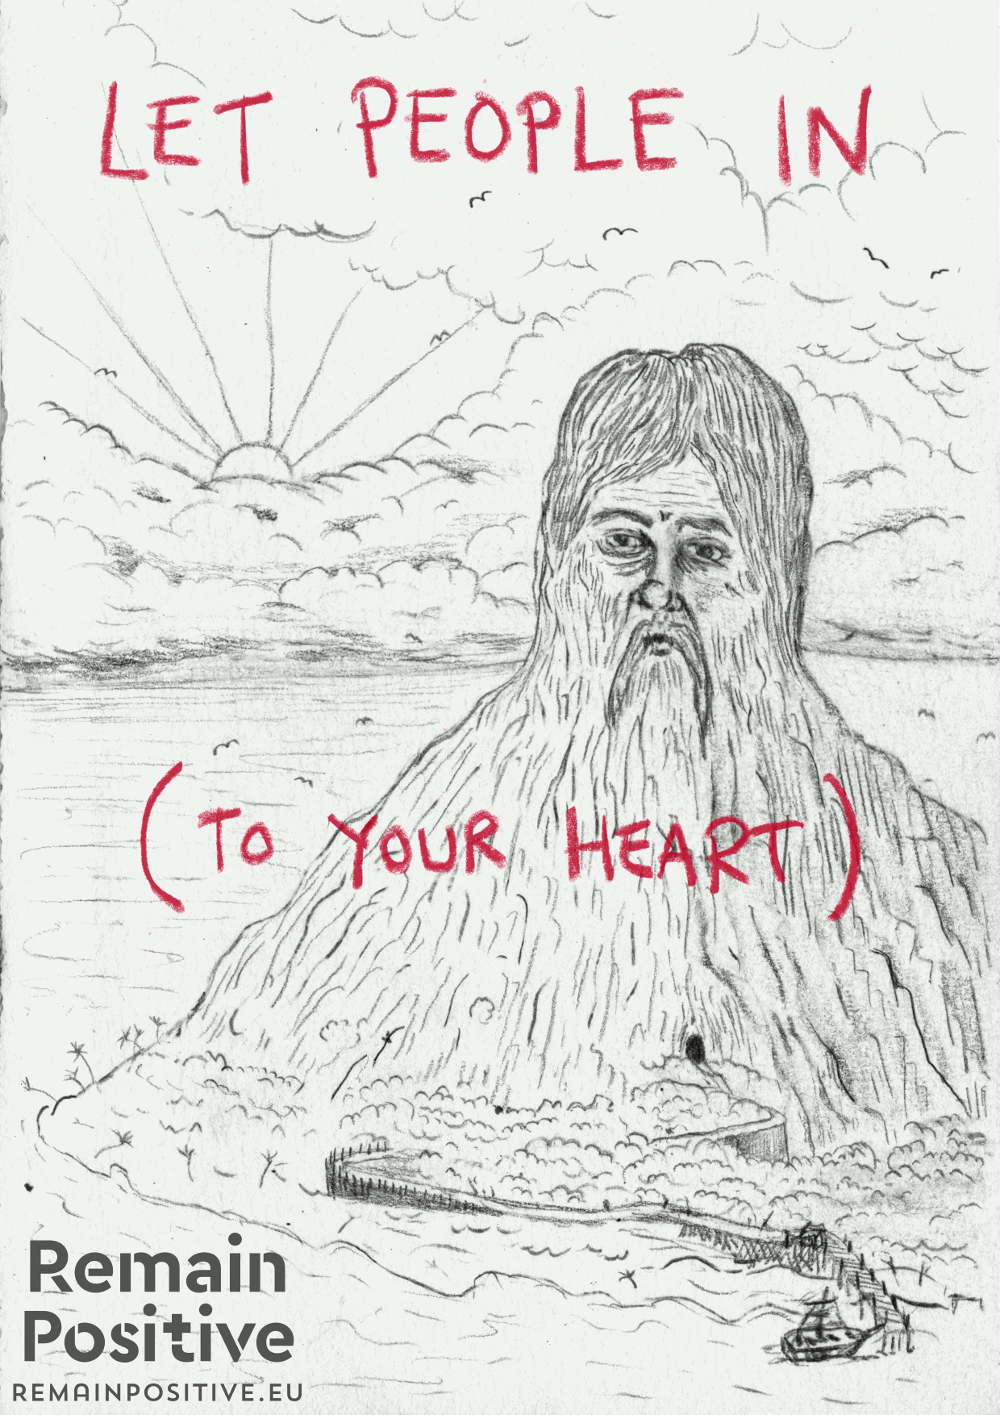 LET PEOPLE IN
(TO YOUR HEART)
Remain
Positive
REMAINPOSITIVE.EU